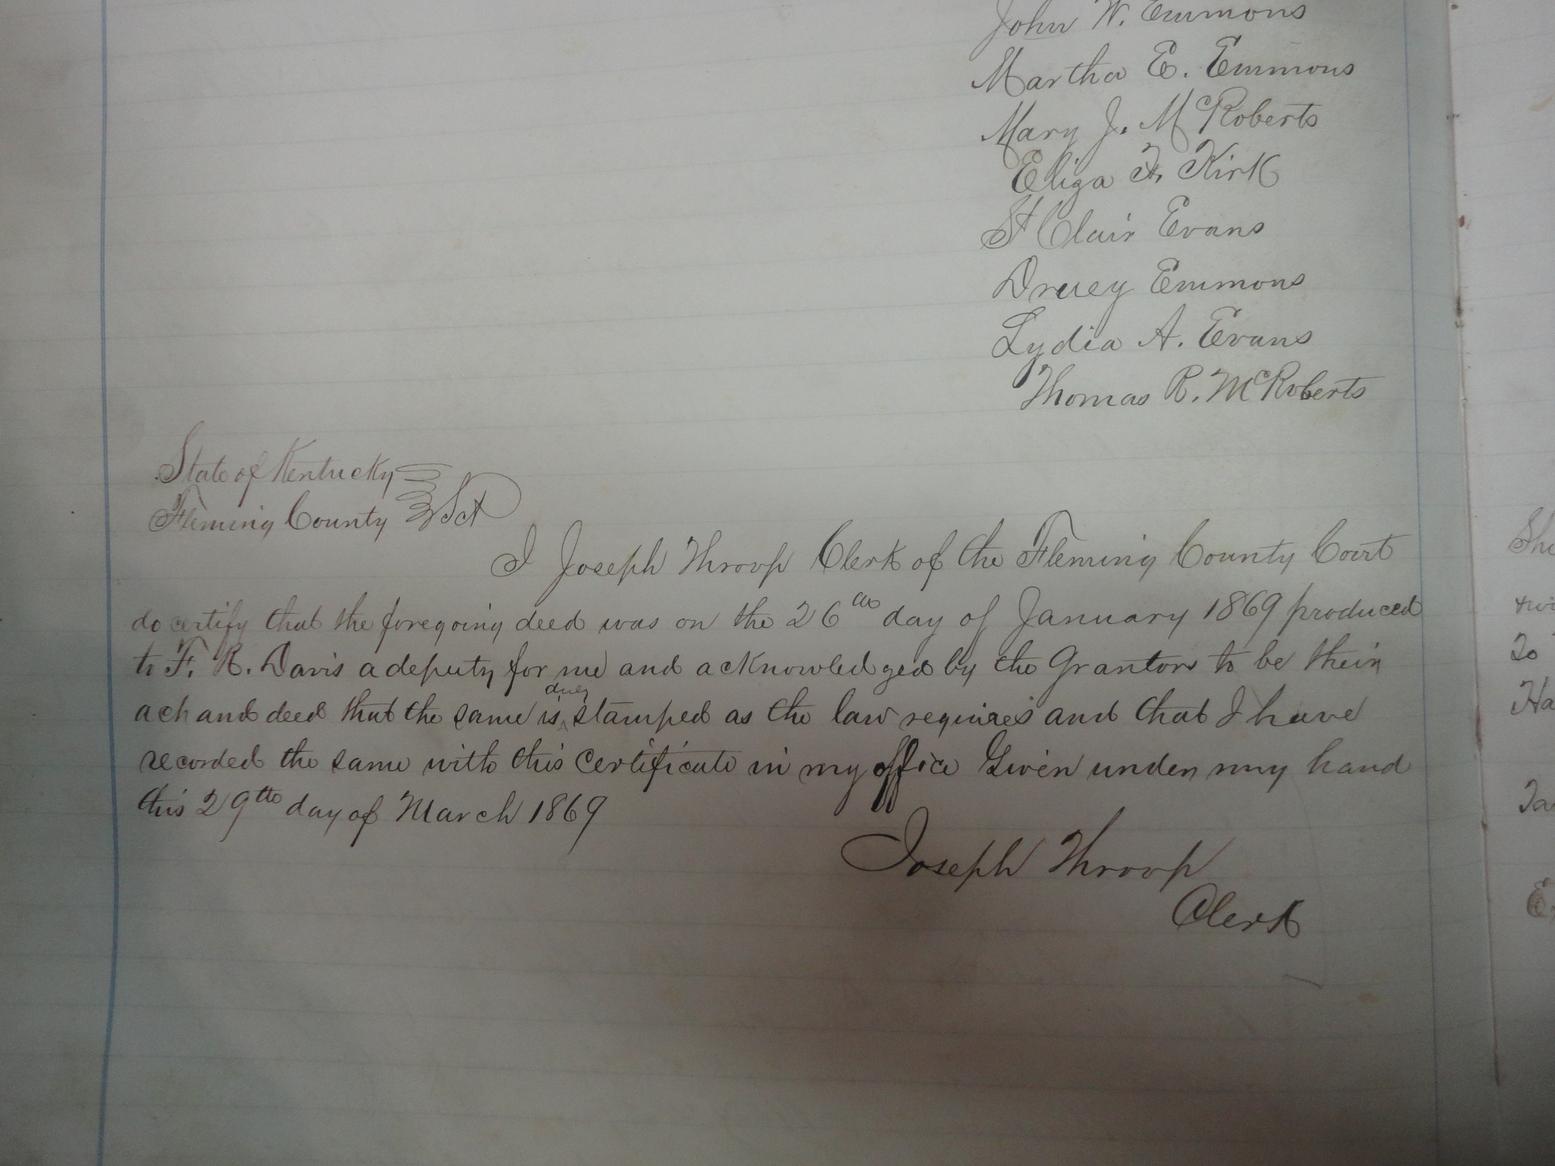 John W. Emmons
Martha E. Emmons
Mary J. McRoberts
Eliza F. Kirk
St Clair Evans
Druey Emmons
Lydia A. Evans
Thomas R. McRoberts
State of Kentucky
Fleming County } Sct
I Joseph Throop Clerk of the Fleming County Court
do certify that the foregoing deed was on the 26th day of January 1869 produced
to F. R. Davis a deputy for me and acknowledged by the Grantors to be their
ach and deed that the same is duly stamped as the law requires and that I have
recorded the same with this certificate in my office Given under my hand
this 29th day of March 1869
Joseph Throop
Clerk
To
Ha